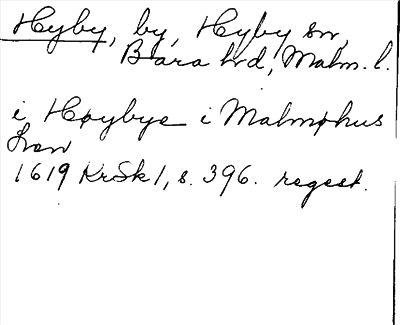 Hyby, by, Hyby sn,
Bara hd, Malm. l.
i Høybye i Malmøhus
Len
1619 KrSk 1, s. 396. regest.